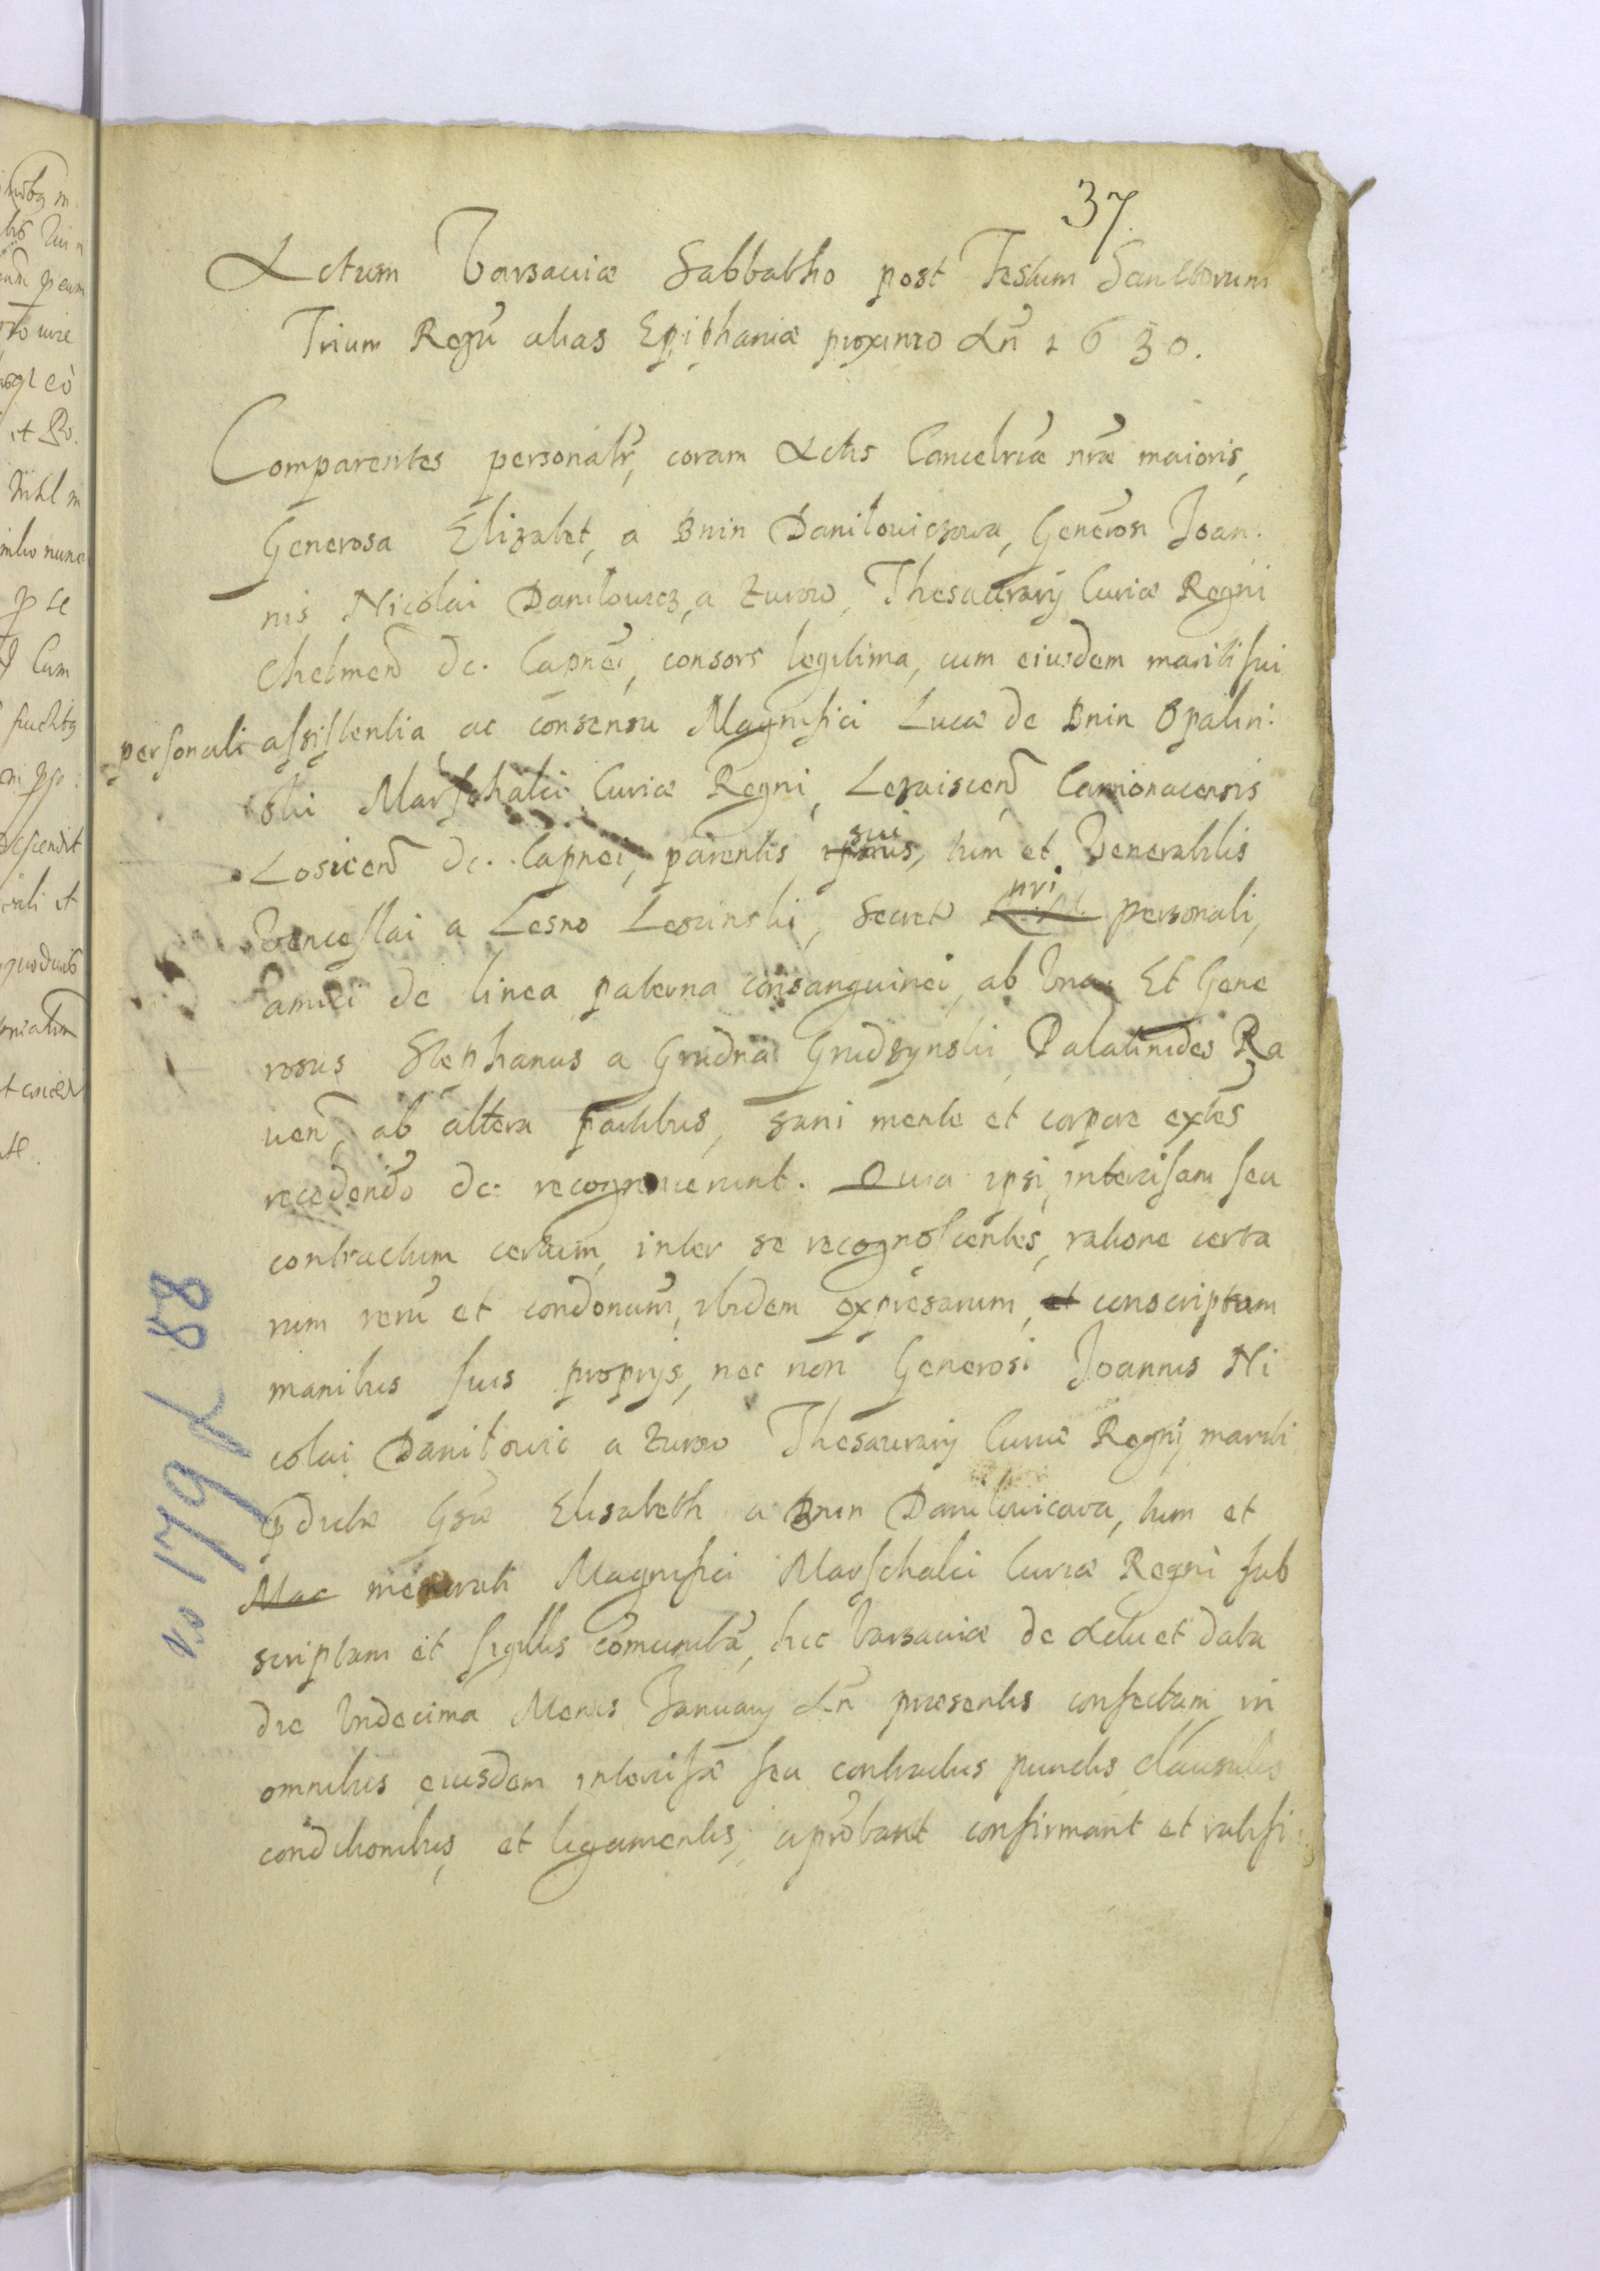 37.
Actum Varsaviæ Sabbatho post Festum Sanctorum
Trium Regū alias Epiphaniæ proximo An̄ 1630.
Comparentes personalr̄, coram Actis Cancelriæ nr̄æ maioris,
Generosa Elizabet, a Bnin Daniłowiczowa, Generosi Joan.
nis Nicolai Daniłowicz, a Żurow, Thesaurarij Curiæ Regni
Chelmen̄ &c. Capnei, consors legitima, cum eiusdem mariti sui
personali assistentia ac consensu Magnifici Lucæ de Bnin Opalin:
ski Marschalci Curiæ Regni, Leżaiscen̄ Camionacensis
Losicen̄ &c. Capnei, parentis sui, tum et Venerabilis
Venceslai a Lesno Leszinski, Secret nri personali,
amici de linea paterna consanguinei, ab Una. Et Gene
rosus Stephanus a Grudna Grudzynski Palatinides Ra
uen̄, ab altera partibus, sani mente et corpore extēs
recedendo &c. recognouerunt. Quia ipsi, intercisam seu
contractum certum, inter se recognoscentes, ratione certa
rum rerū et condonum̄, ibidem expressarum, et conscriptam
manibus suis proprijs, nec non Generosi Joannis Ni
colai Daniłowic a Żurow Thesaurarij Curiæ Regni, mariti
pdictæ Gsæ Elisabeth a Bnin Danilowicova, tum et
Mac memorati Magnifici Marschalci Curiæ Regni sub
scriptam et sigillis com̄unitā, hic Varsaviæ de Actu et data
die Undecima Mensis January An̄ præsentis confectam, in
omnibus eiusdem intercisæ seu contractus punctis clausulis
conditionibus, et ligamentis, aprobant confirmant et ratifi
No 179 d 88